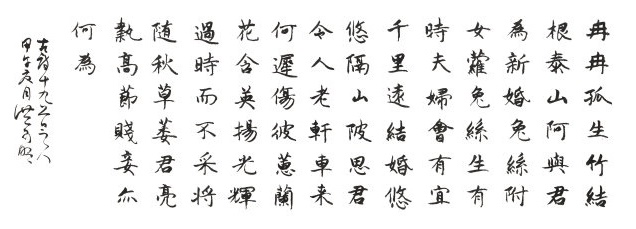 冉冉孤生竹結
根泰山阿與君
為新婚兔絲附
女蘿兔絲生有
時夫婦會有宜
千里遠結婚悠
悠隔山陂思君
令人老軒車来
何遲傷彼蕙蘭
花含英揚光輝
過時而不采将
随秋草萎君亮
執高節賤妾亦
何為
古詩十九首之八
甲午夏月